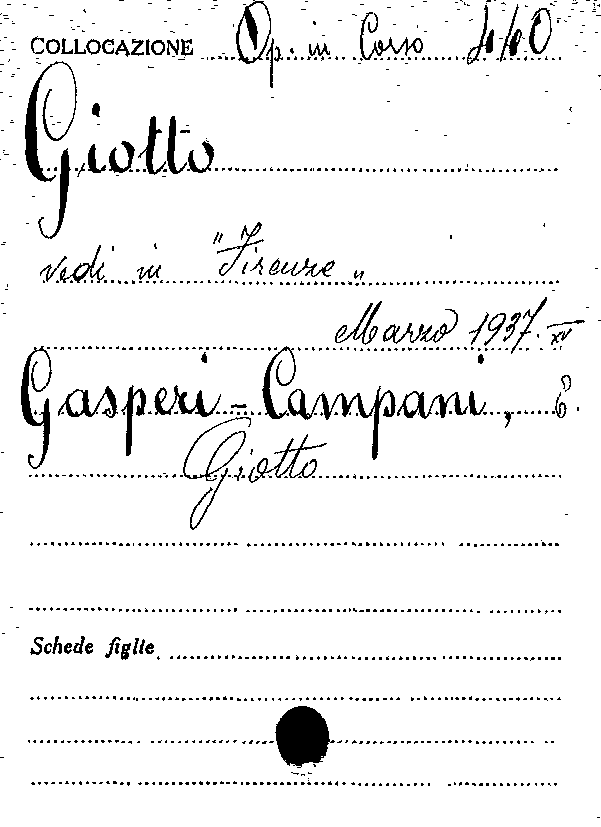 COLLOCAZIONE Op. in Corso
Giotto
vedi in "Firenze"
Marzo 1937. XV
Gasperi-Campani,
Giotto
Schede figlie